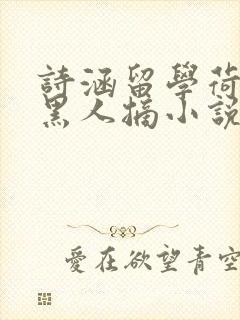 詩涵留學荷
黑人搞小說
愛在欲望青空